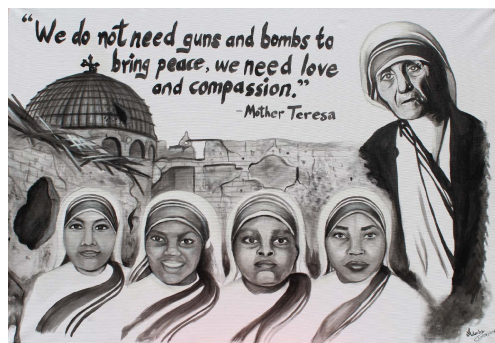 “We do not need guns and bombs to
bring peace, we need love
and compassion.”
-Mother Teresa